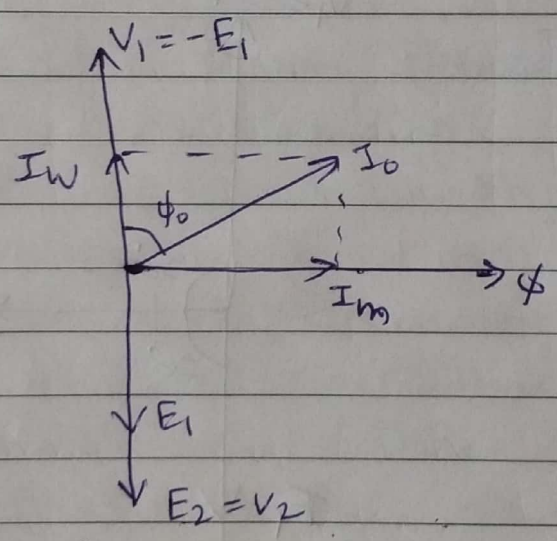 V₁ = -E₁
I_W
I₀
ϕ₀
I_m
ϕ
E₁
E₂ = V₂